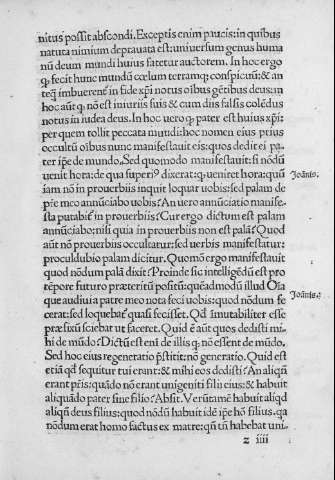 nitus possit abscondi. Exceptis enim paucis: in quibus
natura nimium deprauata est: uniuersum genus huma
nū deum mundi huius fatetur auctorem. In hoc ergo
ꝙ fecit hunc mundū cœlum terramꝙ conspicuū: & an
teq̄ imbuerent̃ in fide xp̄i notus oībus gētibus deus: in
hoc aūt ꝙ nō est iniuriis suis & cum diis falsis colēdus
notus in iudea deus. In hoc uero ꝙ pater est huius xp̄i:
per quem tollit peccata mūdi: hoc nomen eius prius
occultū oībus nunc manifestauit eis: quos dedit ei pa
ter ip̄e de mundo. Sed quomodo manifestauit: si nōdū
uenit hora: de qua superiꝰ dixerat: ꝙ ueniret hora: quū
iam nō in prouerbiis inquit loquar uobis: sed palam de
p̄re meo annūciabo uobis? An uero annūciatio manife
sta putabit̃ in prouerbiis? Cur ergo dictum est palam
annūciabo: nisi quia in prouerbiis non est palā? Quod
aūt nō prouerbiis occultatur: sed uerbis manifestatur:
proculdubio palam dicitur. Quomō ergo manifestauit
quod nōdum palā dixit? Proinde sic intelligēdū est pro
tēpore futuro præteritū positū: quēadmodū illud Oīa
que audiui a patre meo nota feci uobis: quod nōdum fe
cerat: sed loquebat̃ quasi fecisset. Qd̄ īmutabiliter esse
præfixū sciebat ut faceret. Quid ē aūt quos dedisti mi-
hi de mūdo? Dictū est enī de illis ꝙ nō essent de mūdo.
Sed hoc eius regeneratio p̄stitit: nō generatio. Quid est
etiā qd̄ sequitur tui erant: & mihi eos dedisti? An aliqn̄
erant pr̄is: quādo nō erant unigeniti filii eius: & habuit
aliquādo pater sine filio? Absit. Verūtamē habuit aliqd̄
aliqn̄ deus filius: quod nōdū habuit idē ip̄e hō filius. qa
nōdum erat homo factus ex matre: qn̄ tn̄ habebat uni-
z iiii
Ioānis.
Ioānis.